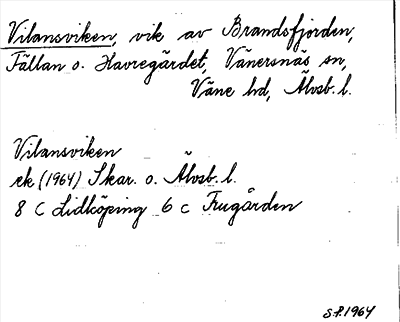 Vilansviken, vik av Brandsfjorden,
Fällan o. Havregärdet, Vänersnäs sn,
Väne hd, Älvsb. l.
Vilansviken
ek (1964) Skar. o. Älvsb. l.
8 C Lidköping 6 c Frugården
S.P. 1964